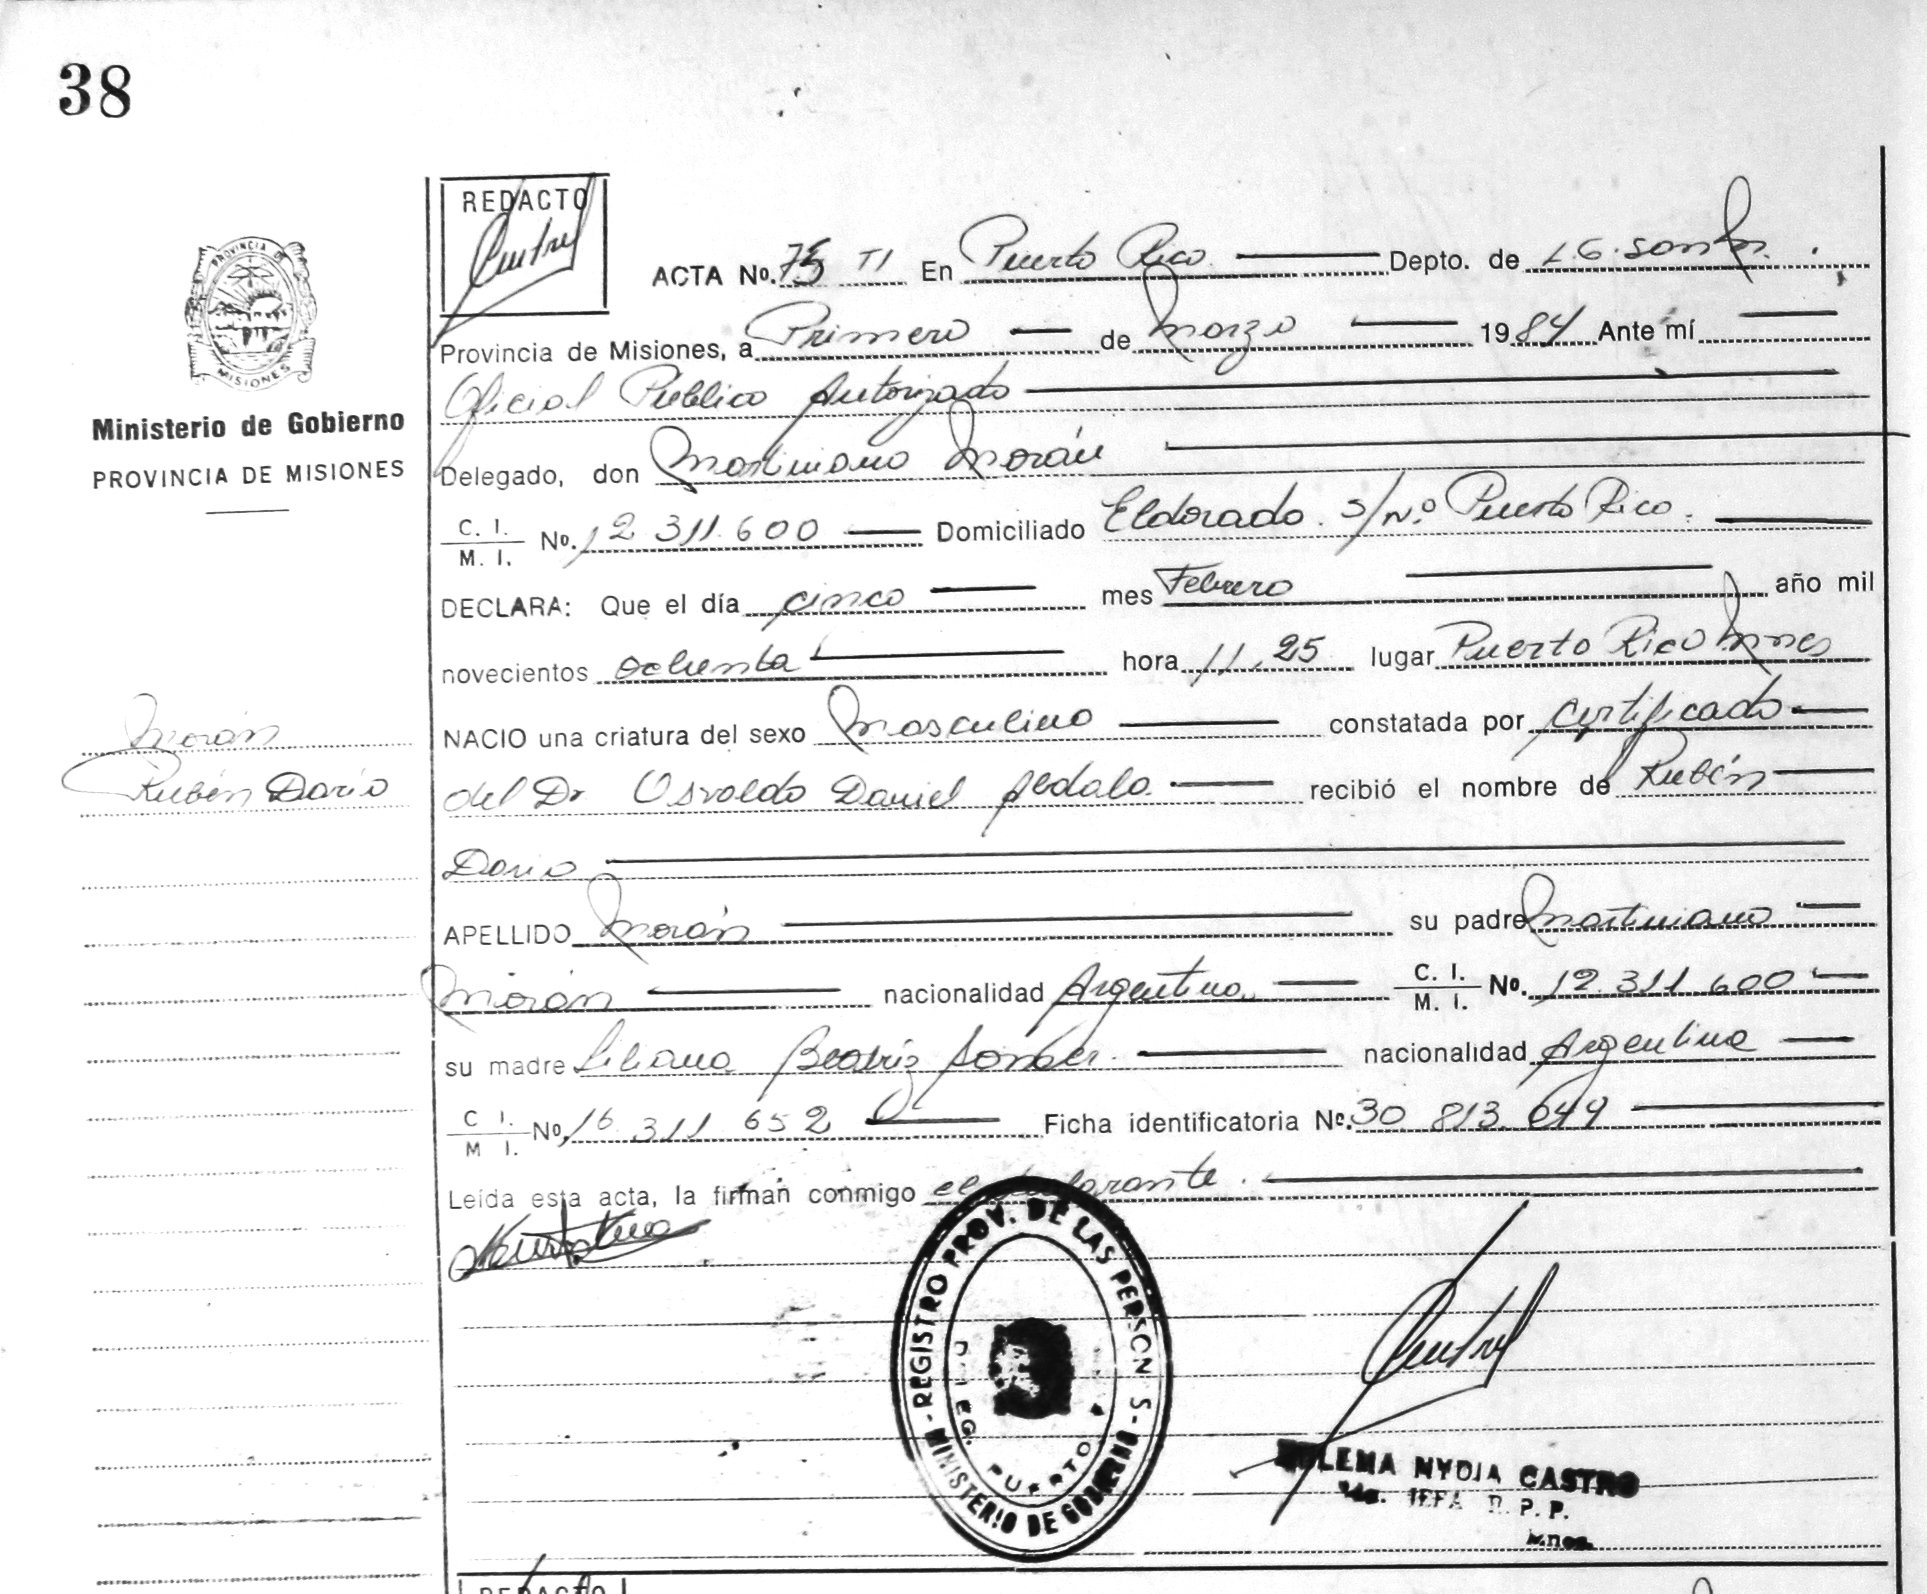 38
REDACTO
ACTA No. 75 TI En Puerto Rico Depto. de L.G. San M.
PROVINCIA DE
MISIONES
Provincia de Misiones, a Primero de Marzo 1984 Ante mí
Oficial Público Autorizado
Ministerio de Gobierno
PROVINCIA DE MISIONES
Delegado, don Martiniano Morán
C. I.
M. I.
No. 12.311.600 Domiciliado Eldorado s/N.º Puerto Rico.
DECLARA: Que el día cinco mes Febrero año mil
novecientos ochenta hora 11,25 lugar Puerto Rico Mnes
NACIO una criatura del sexo Masculino constatada por certificado
Morán
Rubén Darío
del Dr Osvaldo Daniel recibió el nombre de Rubén
Darío
APELLIDO Morán su padre Martiniano
Morán nacionalidad Argentino. C. I.
M. I. No. 12.311.600
su madre Liliana Beatriz nacionalidad Argentina
C I.
M I. No. 16.311.652 Ficha identificatoria No. 30.813.649
Leida esta acta, la firman conmigo el declarante.
REGISTRO PROV. DE LAS PERSON S - MINISTERIO DE GOBIERNO -
DELEG. PUERTO
LEMA NYDIA CASTRO
JEFA R. P. P.
Mnes.
REDACTO